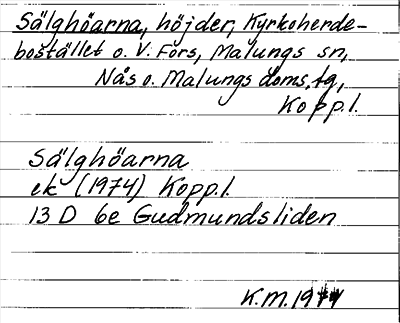 Sälghöarna, höjder, Kyrkoherde-
bostället o. V. Fors, Malungs sn,
Nås o. Malungs doms. tg,
Kopp. l.
Sälghöarna
ek (1974) Kopp. l.
13 D 6e Gudmundsliden
K.M. 1974